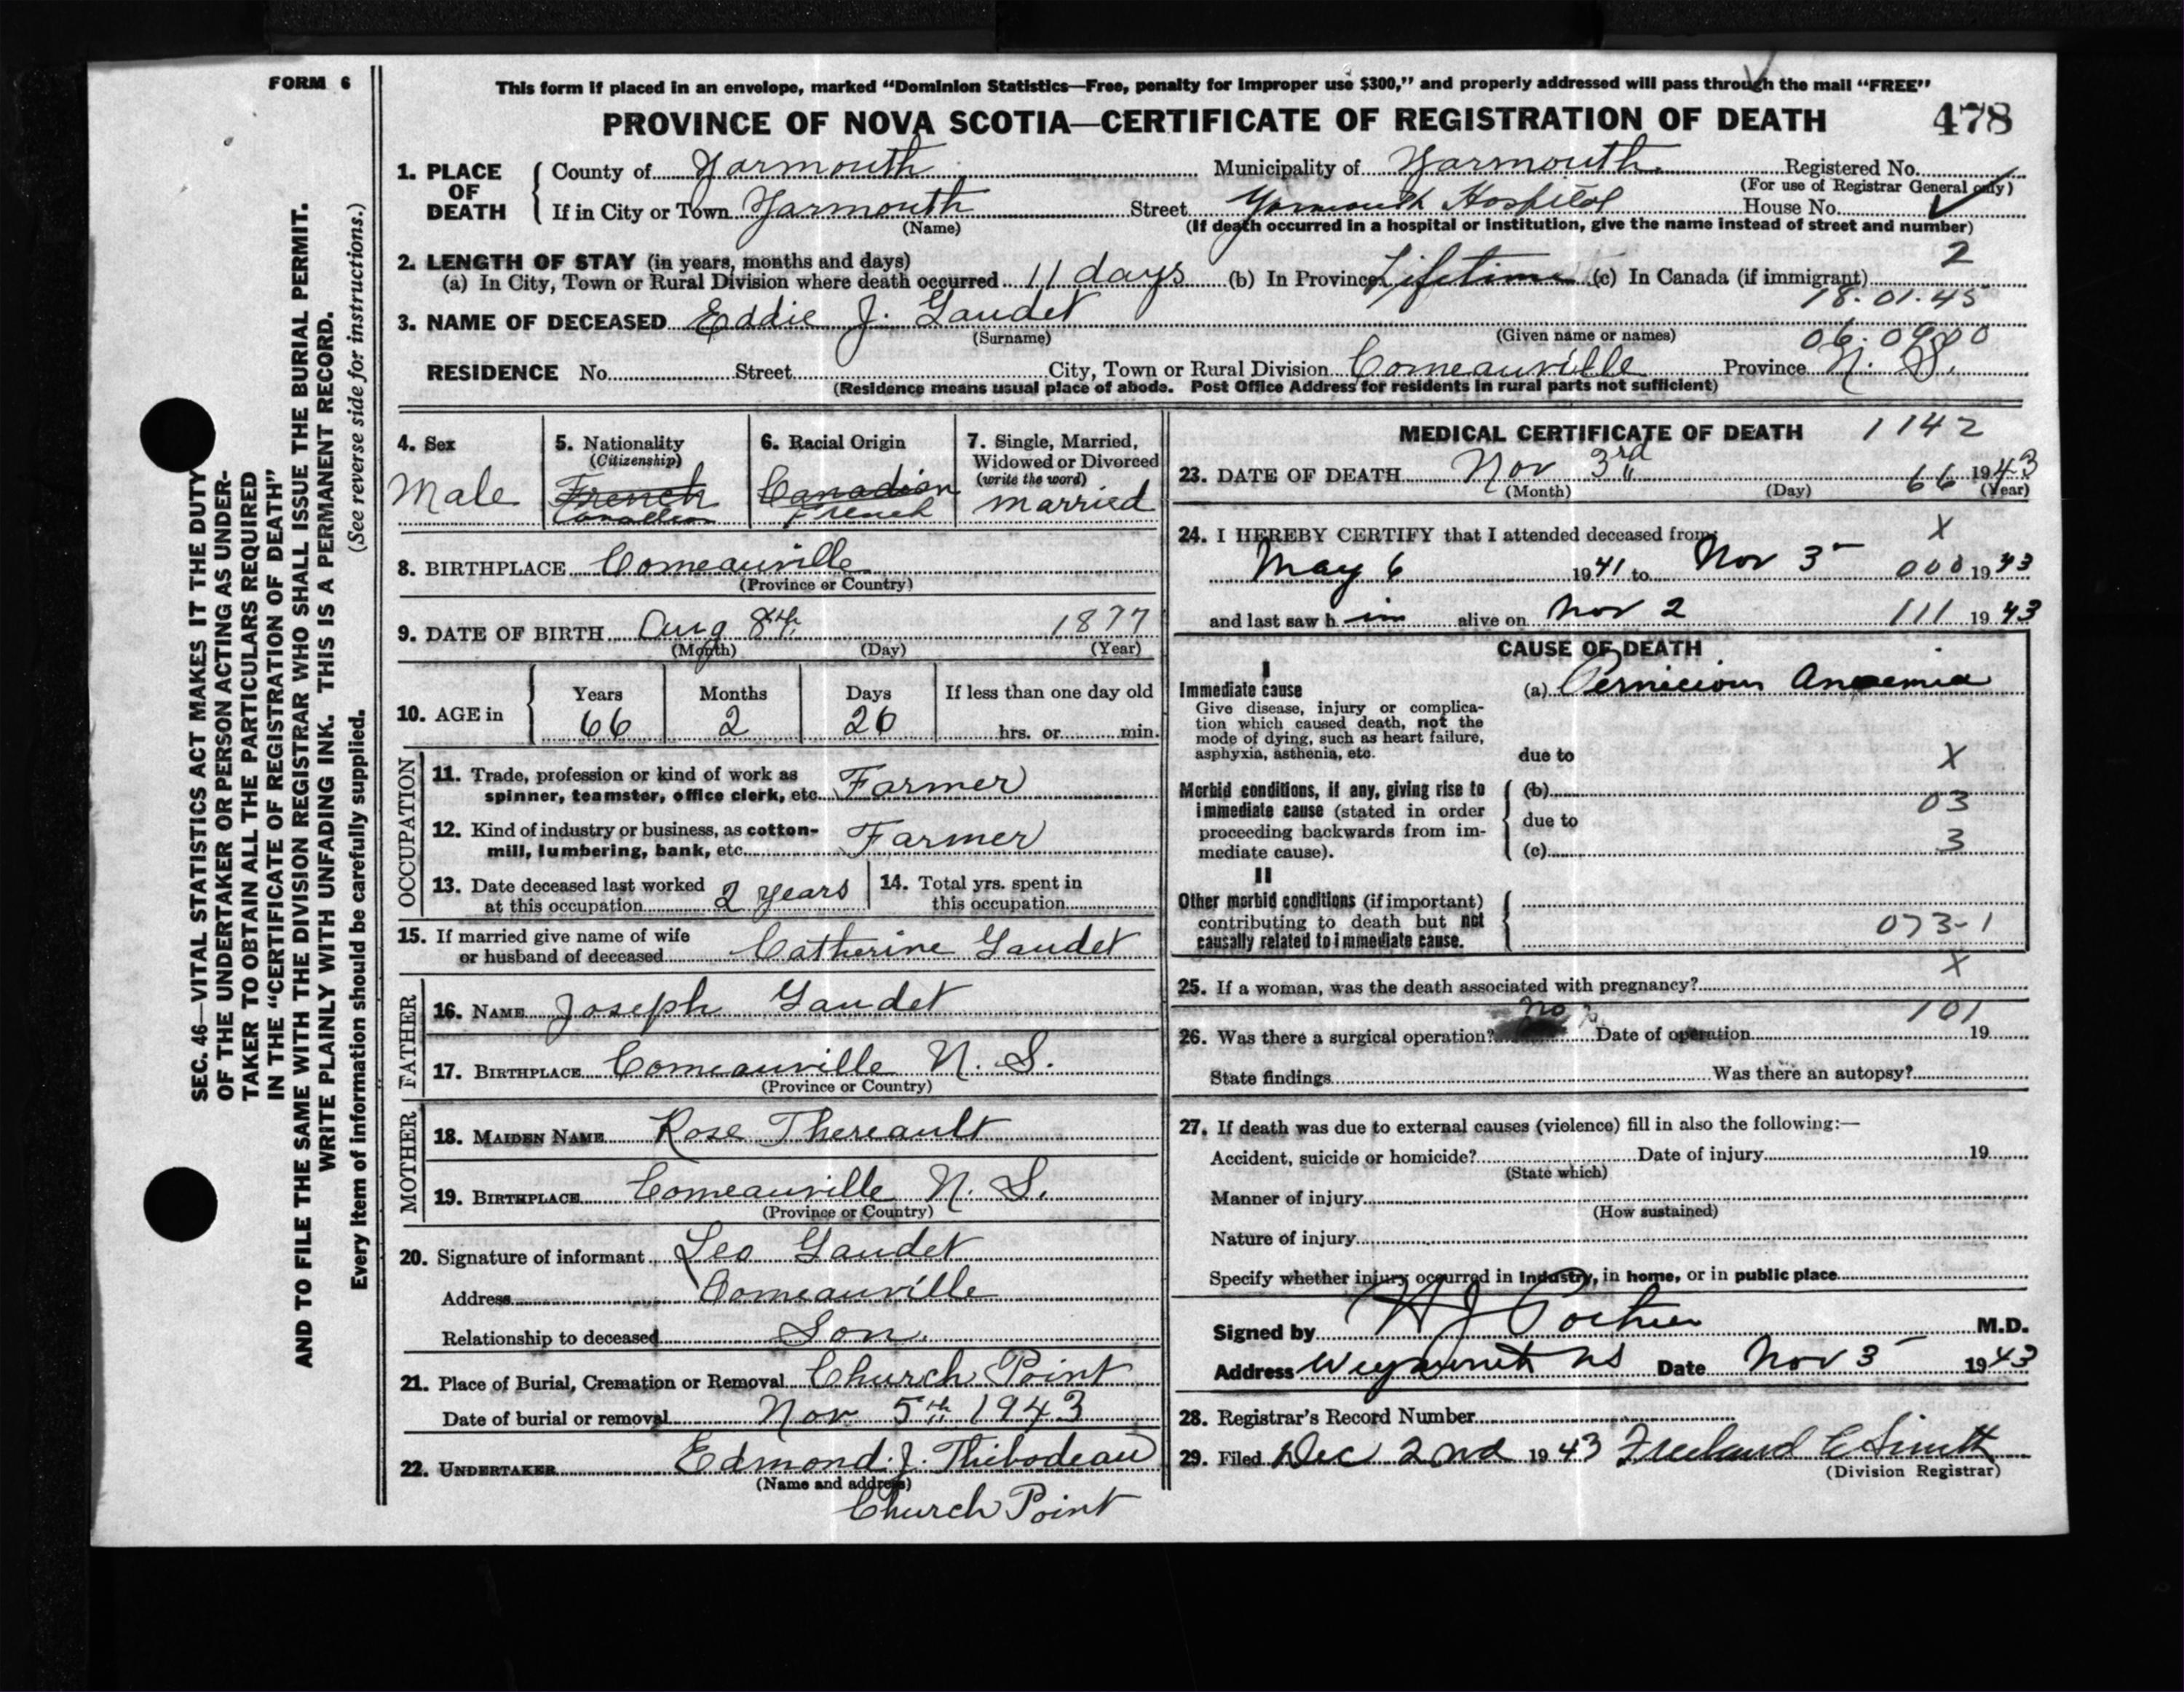 FORM 6
This form if placed in an envelope, marked "Dominion Statistics—Free, penalty for improper use $300," and properly addressed will pass through the mail "FREE"
PROVINCE OF NOVA SCOTIA—CERTIFICATE OF REGISTRATION OF DEATH 478
1. PLACE OF DEATH
County of Yarmouth Municipality of Yarmouth Registered No.
(For use of Registrar General only)
If in City or Town Yarmouth Street Yarmouth Hospital House No.
(Name) (If death occurred in a hospital or institution, give the name instead of street and number)
2
2. LENGTH OF STAY (in years, months and days)
(a) In City, Town or Rural Division where death occurred 11 days (b) In Province Lifetime (c) In Canada (if immigrant)
18.01.45
3. NAME OF DECEASED Eddie J. Gaudet
(Surname) (Given name or names)
RESIDENCE No. Street City, Town or Rural Division Comeauville Province N. S.
(Residence means usual place of abode. Post Office Address for residents in rural parts not sufficient)
4. Sex
Male
5. Nationality
(Citizenship)
French
Canadian
6. Racial Origin
Canadian
French
7. Single, Married,
Widowed or Divorced
(write the word)
married
8. BIRTHPLACE Comeauville
(Province or Country)
9. DATE OF BIRTH Aug 8th 1877
(Month) (Day) (Year)
10. AGE in
Years Months Days If less than one day old
66 2 26 hrs. or min.
OCCUPATION
11. Trade, profession or kind of work as
spinner, teamster, office clerk, etc. Farmer
12. Kind of industry or business, as cotton-
mill, lumbering, bank, etc. Farmer
13. Date deceased last worked
at this occupation 2 years
14. Total yrs. spent in
this occupation
15. If married give name of wife
or husband of deceased Catherine Gaudet
FATHER
16. NAME Joseph Gaudet
17. BIRTHPLACE Comeauville N. S.
(Province or Country)
MOTHER
18. MAIDEN NAME Rose Thereault
19. BIRTHPLACE Comeauville N. S.
(Province or Country)
20. Signature of informant Leo Gaudet
Address Comeauville
Relationship to deceased Son.
21. Place of Burial, Cremation or Removal Church Point
Date of burial or removal Nov 5th 1943
22. UNDERTAKER Edmond. J. Thibodeau
(Name and address)
Church Point
MEDICAL CERTIFICATE OF DEATH 1142
23. DATE OF DEATH Nov 3rd 66 1943
(Month) (Day) (Year)
24. I HEREBY CERTIFY that I attended deceased from: X
May 6 1941 to Nov 3 000 1943
and last saw h im alive on Nov 2 111 1943
CAUSE OF DEATH
I
Immediate cause
Give disease, injury or complica-
tion which caused death, not the
mode of dying, such as heart failure,
asphyxia, asthenia, etc.
(a) Pernicious Anaemia
due to X
Morbid conditions, if any, giving rise to
immediate cause (stated in order
proceeding backwards from im-
mediate cause).
(b) 03
due to
(c) 3
II
Other morbid conditions (if important)
contributing to death but not
causally related to immediate cause.
073-1
X
25. If a woman, was the death associated with pregnancy?
26. Was there a surgical operation? No Date of operation 101 19
State findings Was there an autopsy?
27. If death was due to external causes (violence) fill in also the following:—
Accident, suicide or homicide? Date of injury 19
(State which)
Manner of injury
(How sustained)
Nature of injury
Specify whether injury occurred in industry, in home, or in public place
Signed by H J Pothier M.D.
Address Weymouth NS Date Nov 3 1943
28. Registrar's Record Number
29. Filed Dec 2nd 1943 Freeland E Smith
(Division Registrar)
SEC. 46—VITAL STATISTICS ACT MAKES IT THE DUTY
OF THE UNDERTAKER OR PERSON ACTING AS UNDER-
TAKER TO OBTAIN ALL THE PARTICULARS REQUIRED
IN THE "CERTIFICATE OF REGISTRATION OF DEATH"
AND TO FILE THE SAME WITH THE DIVISION REGISTRAR WHO SHALL ISSUE THE BURIAL PERMIT.
WRITE PLAINLY WITH UNFADING INK. THIS IS A PERMANENT RECORD.
Every item of information should be carefully supplied. (See reverse side for instructions.)